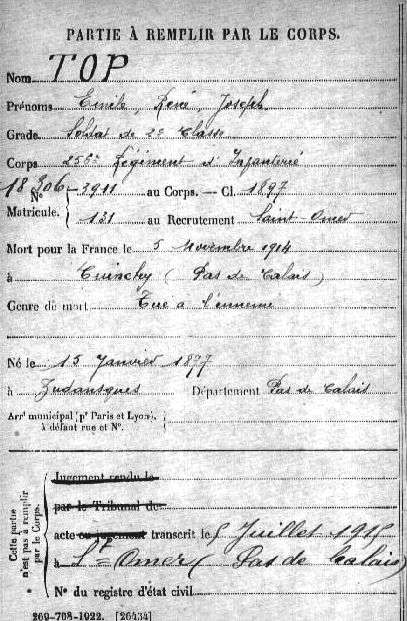 PARTIE À REMPLIR PAR LE CORPS.
Nom TOP
Prénoms Emile, René, Joseph
Grade Soldat de 2e Classe
Corps Régiment d'Infanterie
No au Corps. — Cl. 1897
Matricule. 131 au Recrutement Saint-Omer
Mort pour la France le 5 Novembre 1914
à Cuinchy (Pas de Calais)
Genre de mort Tué à l'ennemi
Né le 15 Janvier 1877
à Zudausques Département Pas de Calais
Arrt municipal (pr Paris et Lyon),
à défaut rue et No.
Cette partie
n'est pas à remplir
par le Corps.
Jugement rendu le
par le Tribunal de
acte ou jugement transcrit le 5 Juillet 1915
à St Omer (Pas de Calais)
No du registre d'état civil
269-708-1922. [26434]